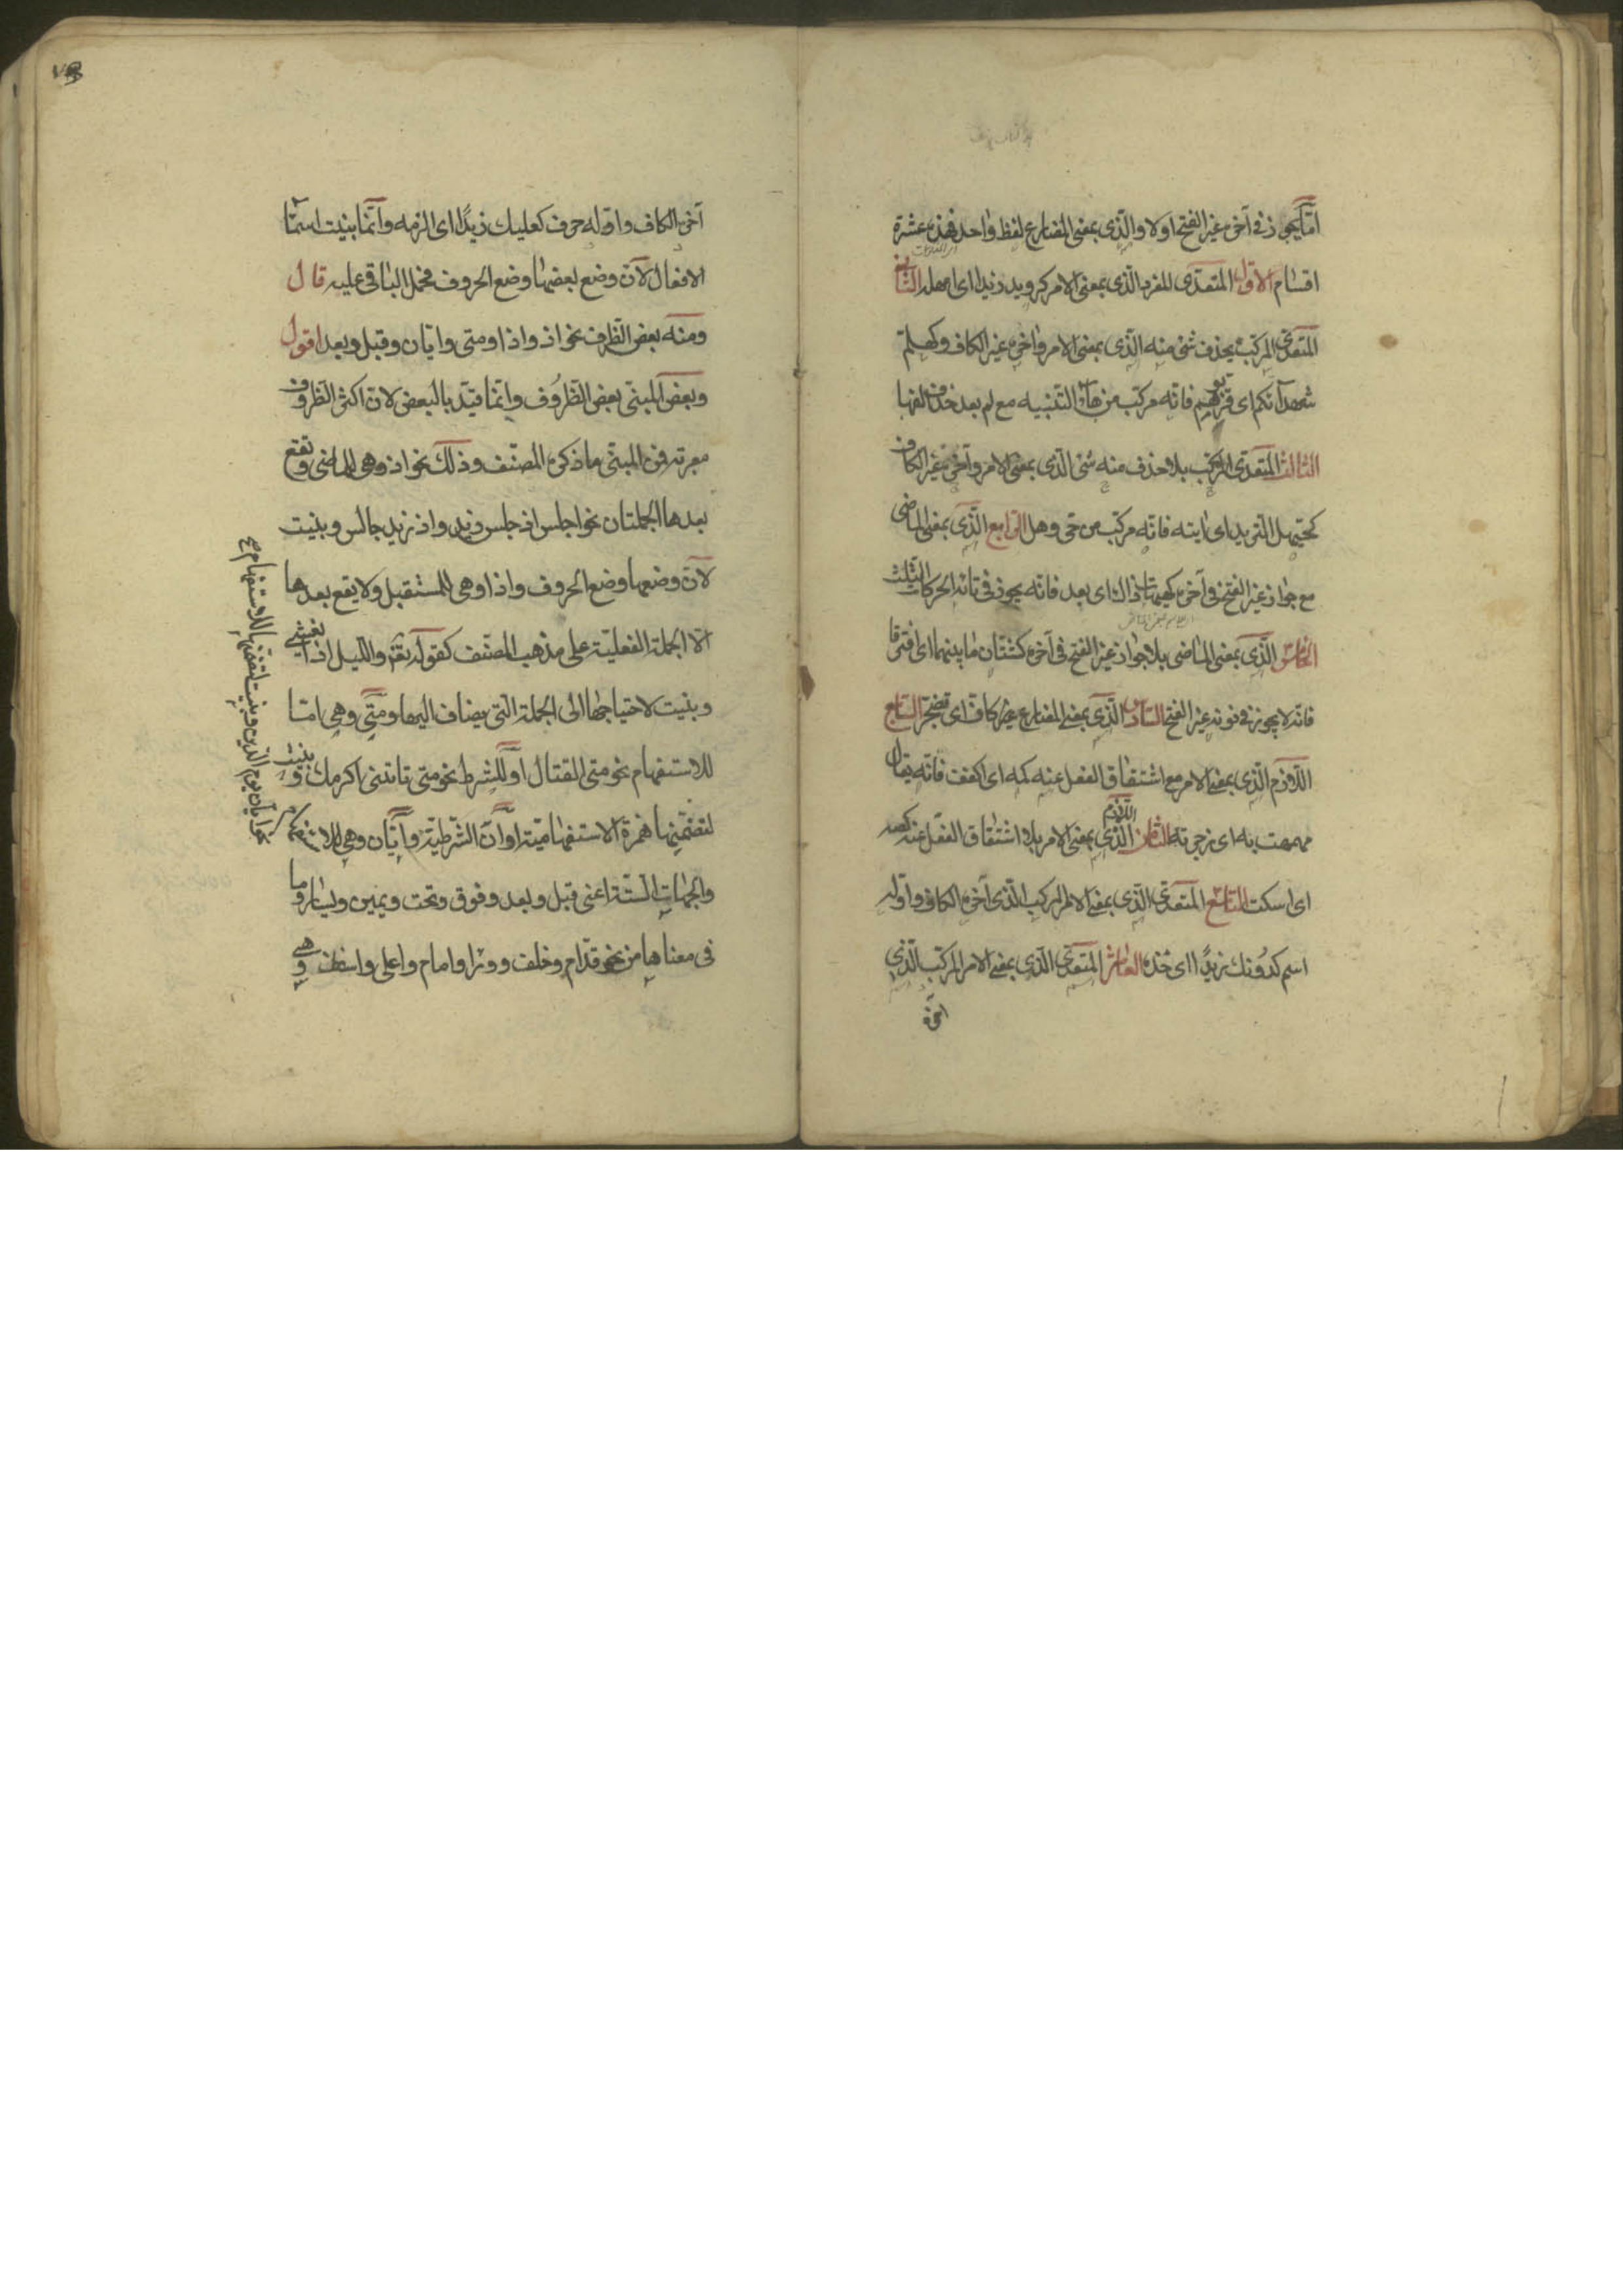 امّا يجوز في آخره غير الفتح اولا والّذى بمعنى المضارع لفظ واحد فهذه عشرة
اقسام الاوّل المتعدّى المفرد الّذى بمعنى الامر كرويد زيدا اى امهله الثّانى
المتعدّى المركّب بحذف شئ منه الّذى بمعنى الامر وآخره غير الكاف وكهلمّ
شهدآءكم اى قرّبوهم فانّه مركّب من هاء التنبيه مع لم بعد حذف الفها
الثالث المتعدّى المركّب بلا حذف منه شئ الّذى بمعنى الامر وآخره غير الكاف
كحيّهل الثّريد اى ايته فانّه مركّب من حى وهل الرّابع الّذى بمعنى الماضى
مع جواز غير الفتح فى آخره كهيهات ذاك اى بعد فانّه يجوز فى تائه الحركات الثّلث
الخامس الّذى بمعنى الماضى بلا جواز غير الفتح فى آخره كشتّان ما بينهما اى افترقا
فانّه لا يجوز فى نونه غير الفتح السّادس الّذى بمعنى المضارع غير كاف اى تضجّر السّابع
اللّازم الّذى بمعنى الامر مع اشتقاق الفعل عنه كمه اى اكفف فانّه يقال
مهمهت به اى زجرته الثامن اللّازم الّذى بمعنى الامر بلا اشتقاق الفعل عنه كصه
اى اسكت التاسع المتعدّى الّذى بمعنى الامر المركب الّذى آخره الكاف واوّله
اسم كدُونك زيدًا اى خُذه العاشر المتعدّى الّذى بمعنى الامر المركّب الّذى
آخره
آخره الكاف واوّله حرف كعليك زيدًا اى الزمه وانّما بنيت اسمآء
الافعال لانّ وضع بعضها وضع الحروف فحمل الباقى عليه قال
ومنه بعض الظّرف نحو اذ واذا ومتى وايّان وقبل وبعد اقول
وبعض المبنّى بعض الظّرُوف وانّما قيّد بالبعض لانّ اكثر الظّروف
معربة فمن المبنّى ما ذكره المصنّف وذلك نحو اذ وهى للماضى وتقع
بعدها الجملتان نحو اجلس اذ جلس زيد واذ زيد جالس وبنيت
لانّ وضعها وضع الحروف واذا وهى للمستقبل ولا يقع بعدها
الّا الجملة الفعليّة على مذهب المصنّف كقوله تعالى واللّيل اذا يغشى
وبنيت لاحتياجها الى الجملة الّتى يضاف اليها ومتى وهى امّا
للاستفهام نحو متى القتال او للشرط نحو متى تاتنى اكرمك وبنيت
لتضمّنها همزة الاستفهاميّة او ان الشّرطيّة وايّان وهى للاستفهام
نحو ايّان يوم الدّين وبنيت لتضمّنها للاستفهام صح
والجهات السّتّة اعنى قبل وبعد وفوق وتحت ويمين ويسار وما
فى معناها من نحو قدّام وخلف وورا وامام واعلى واسفل وهى